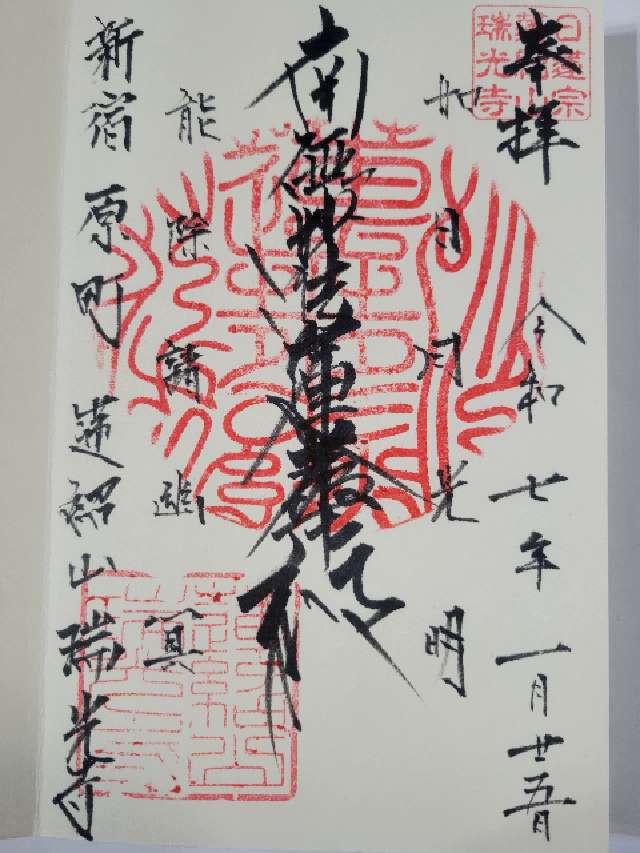 奉拝
令和七年一月廿五日
如日月光明
南無妙法蓮華経
能除諸幽冥
新宿原町 蓮紹山 瑞光寺
日蓮宗
蓮紹山
瑞光寺